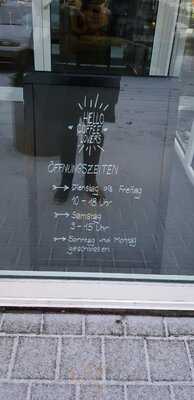 HELLO
COFFEE
LOVERS
ÖFFNUNGSZEITEN
→ Dienstag bis Freitag
10 - 18 Uhr
→ Samstag
9 - 15 Uhr
→ Sonntag und Montag
geschlossen